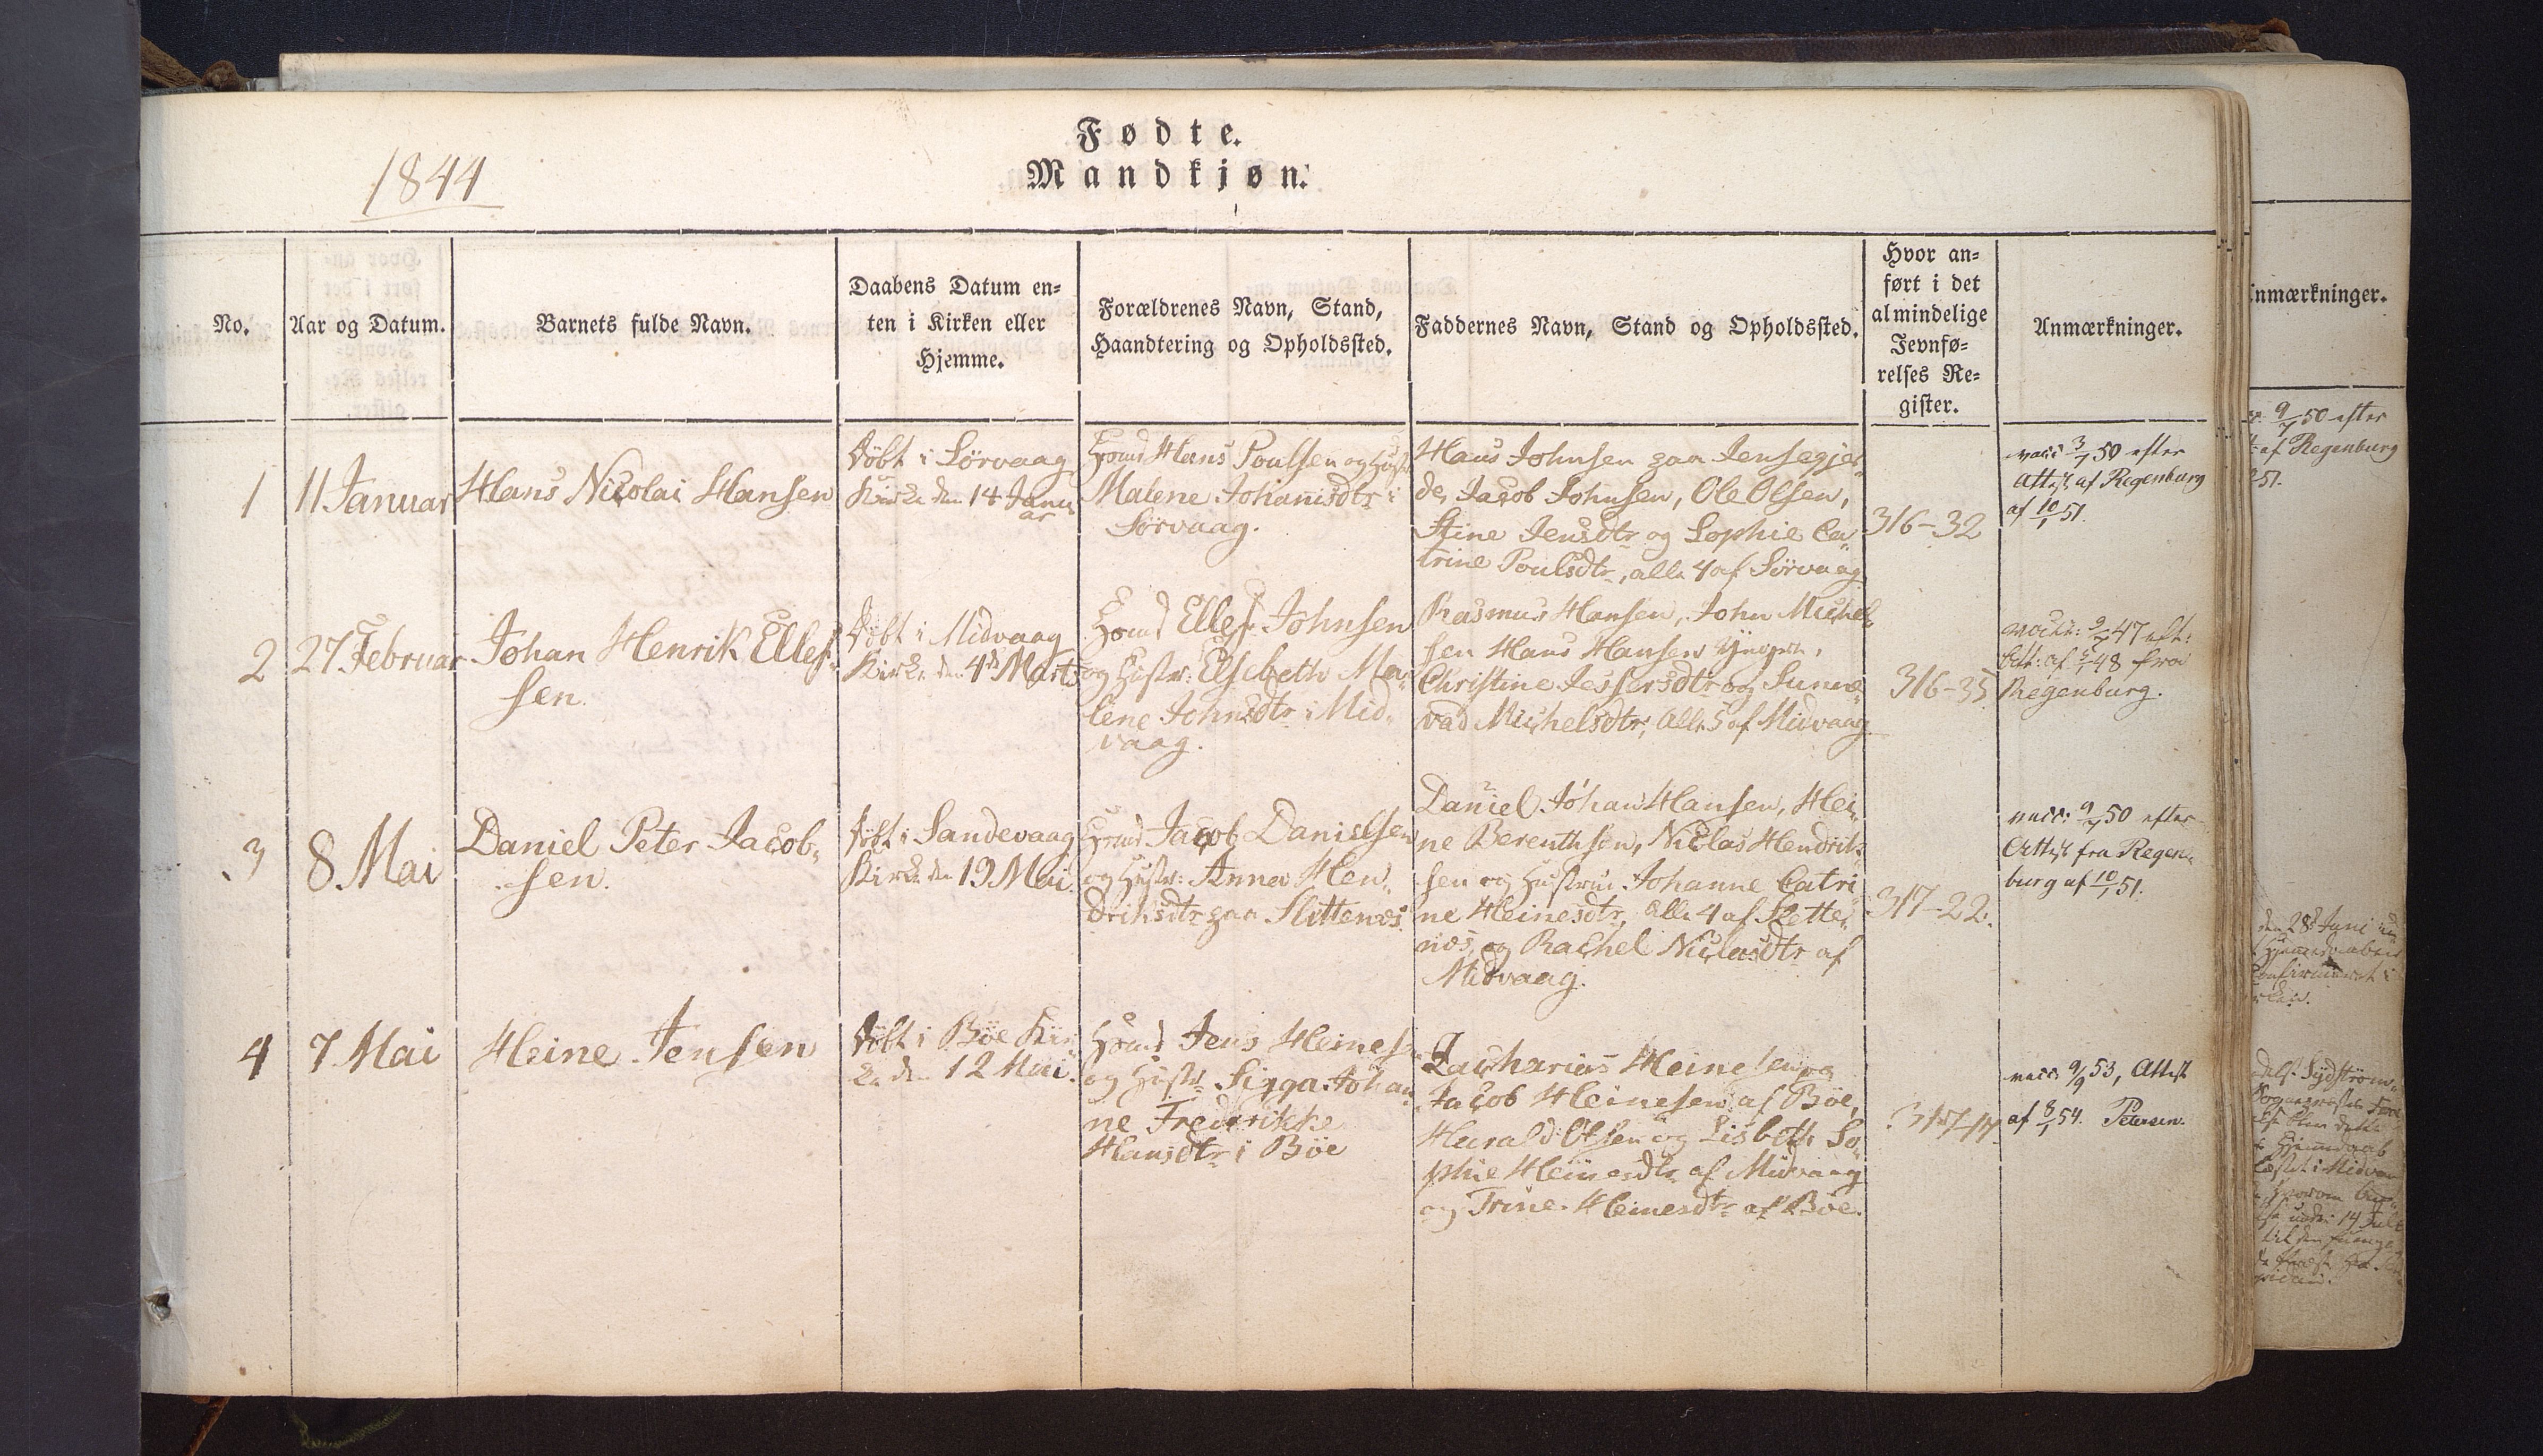 Fødte.
Mandkjøn.
1844
No.
Aar og Datum.
Barnets fulde Navn.
Daabens Datum en-
ten i Kirken eller
Hjemme.
Forældrenes Navn, Stand,
Haandtering og Opholdssted.
Faddernes Navn, Stand og Opholdssted.
Hvor an-
ført i det
almindelige
Jevnfø-
relses Re-
gister.
Anmærkninger.
1
11 Januar
Hans Nicolai Hansen
Døbt i Sörvaag
Kirke den 14 Janu-
ar
Hans Poulsen og
Malene Johannisdtr i
Sörvaag.
Hans Johnsen paa Jensegjer-
de, Jacob Johnsen, Ole Olsen,
Stine Jensdtr og Sophie Ca-
trine Poulsdtr, alle 4 af Sörvaag.
316-32
vacc: 3/7 50 efter
Attest af Regenburg
af 10/1 51.
2
27 Februar
Johan Henrik Ellef-
sen.
Døbt i Midvaag
Kirke den 4de Marts
Ellef Johnsen
og Hustr: Elsebeth Ma-
lene Johnsdtr i Mid-
vaag.
Rasmus Hansen, John Michel-
sen Hans Hansen
Christine Jespersdtr og Sunne-
vad Michelsdtr, alle 5 af Midvaag.
316-35.
47 eft:
Att: af 48 fra
Regenburg.
3
8 Mai
Daniel Peter Jacob-
sen.
Døbt i Sandevaag
Kirke den 19 Mai.
Jacob Danielsen
og Hustr: Anna Hen-
driksdtr paa Slettenæs.
Daniel Johan Hansen, Hei-
ne Berenthsen, Niclas Hendrik-
sen og Hustrue Johanne Catri-
ne Heinesdtr, alle 4 af Slette-
næs, og Rachel Niclasdtr af
Midvaag.
317-22.
vacc: 9/7 50 efter
Attest fra Regen-
burg af 10/1 51.
4
7 Mai
Heine Jensen
Døbt i Böe Kir-
ke den 12 Mai.
Jens Heinesen
og Hustr Sigga Johan-
ne Frederikke
Hansdtr i Böe
Zacharias Heinesen og
Jacob Heinesen af Böe,
Harald Olsen og Lisbeth So-
phie Heinesdtr af Midvaag
og Trine Heinesdtr af Böe.
vacc: 9/9 53, Attest
af 8/1 54. Petersen.
nmærkninger.
9/7 50 efter
af Regenburg
51.
den 28 Juni